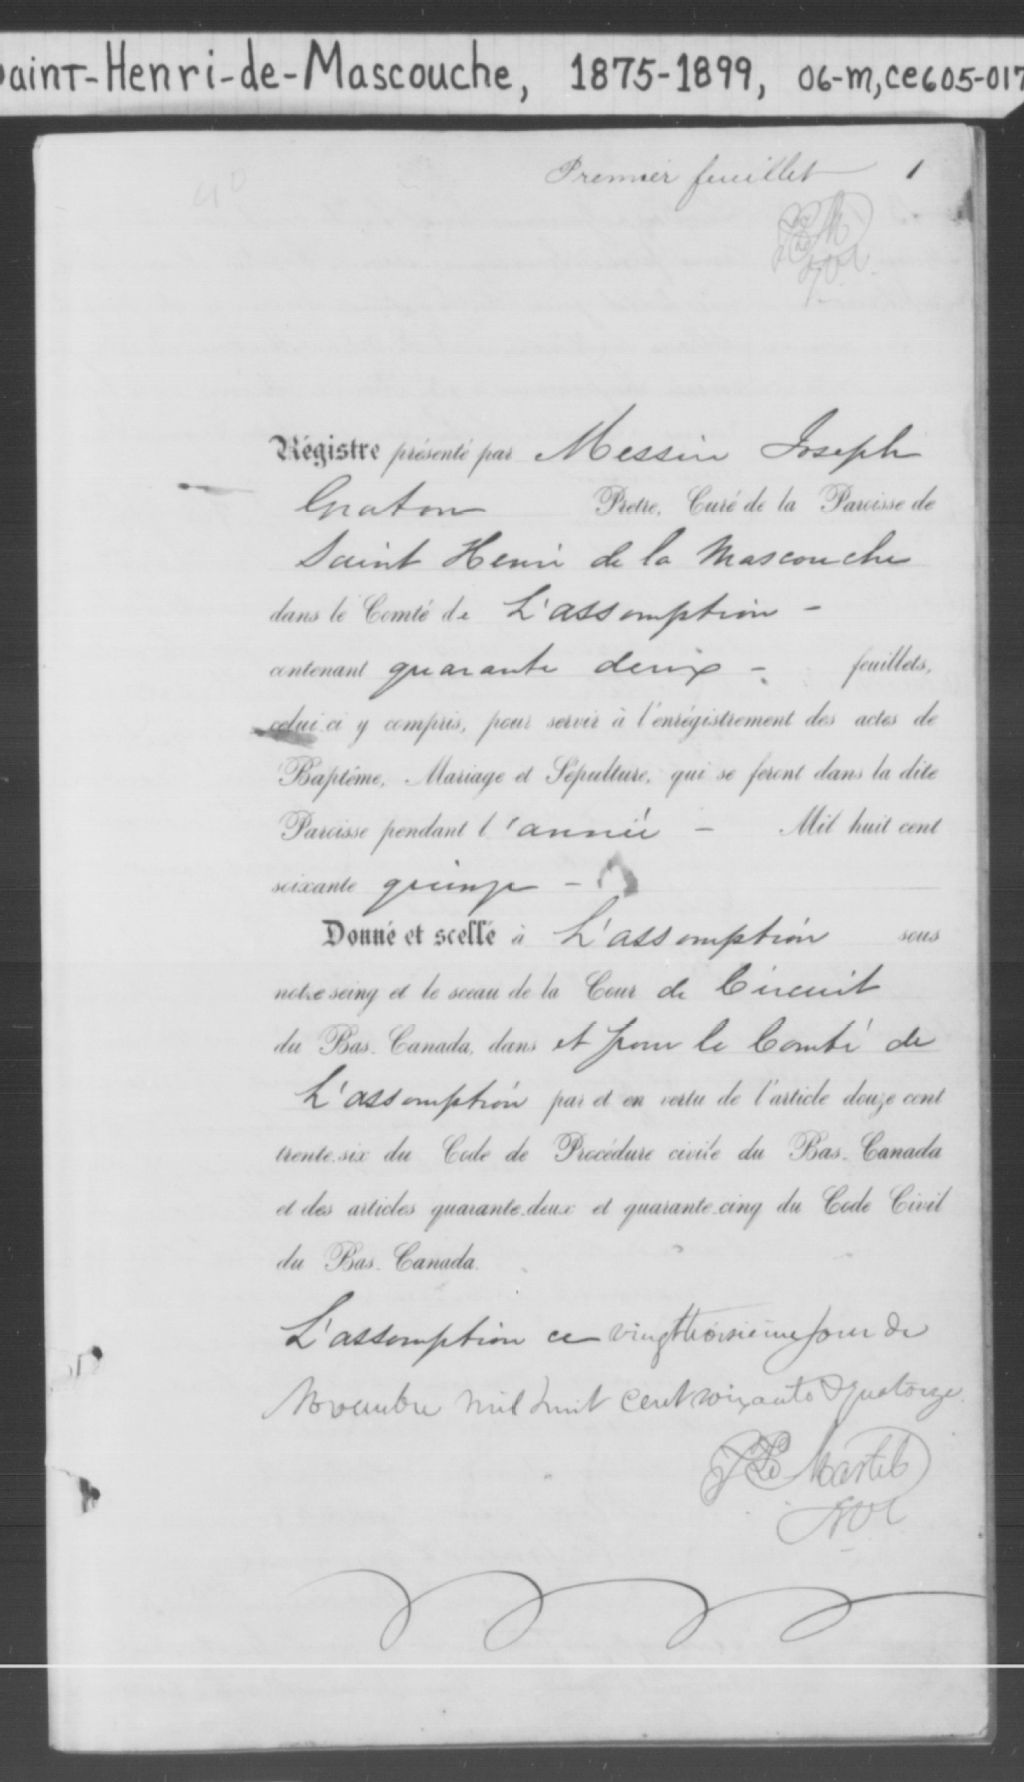 aint-Henri-de-Mascouche, 1875-1899, 06-m, ce605-017
Premier feuillet 1
Régistre présenté par Messire Joseph
Graton Prêtre, Curé de la Paroisse de
Saint Henri de la Mascouche
dans le Comté de L'assomption -
contenant quarante deux - feuillets,
celui-ci y compris, pour servir à l'enrégistrement des actes de
Baptême, Mariage et Sépulture, qui se feront dans la dite
Paroisse pendant l'année - Mil huit cent
soixante quinze -
Donné et scellé à L'assomption sous
notre seing et le sceau de la Cour de Circuit
du Bas-Canada, dans et pour le Comté de
L'assomption par et en vertu de l'article douze cent
trente-six du Code de Procédure civile du Bas-Canada
et des articles quarante-deux et quarante-cinq du Code Civil
du Bas-Canada.
L'assomption ce vingt troisième jour de
Novembre mil huit cent soixante & quatorze.
Martel